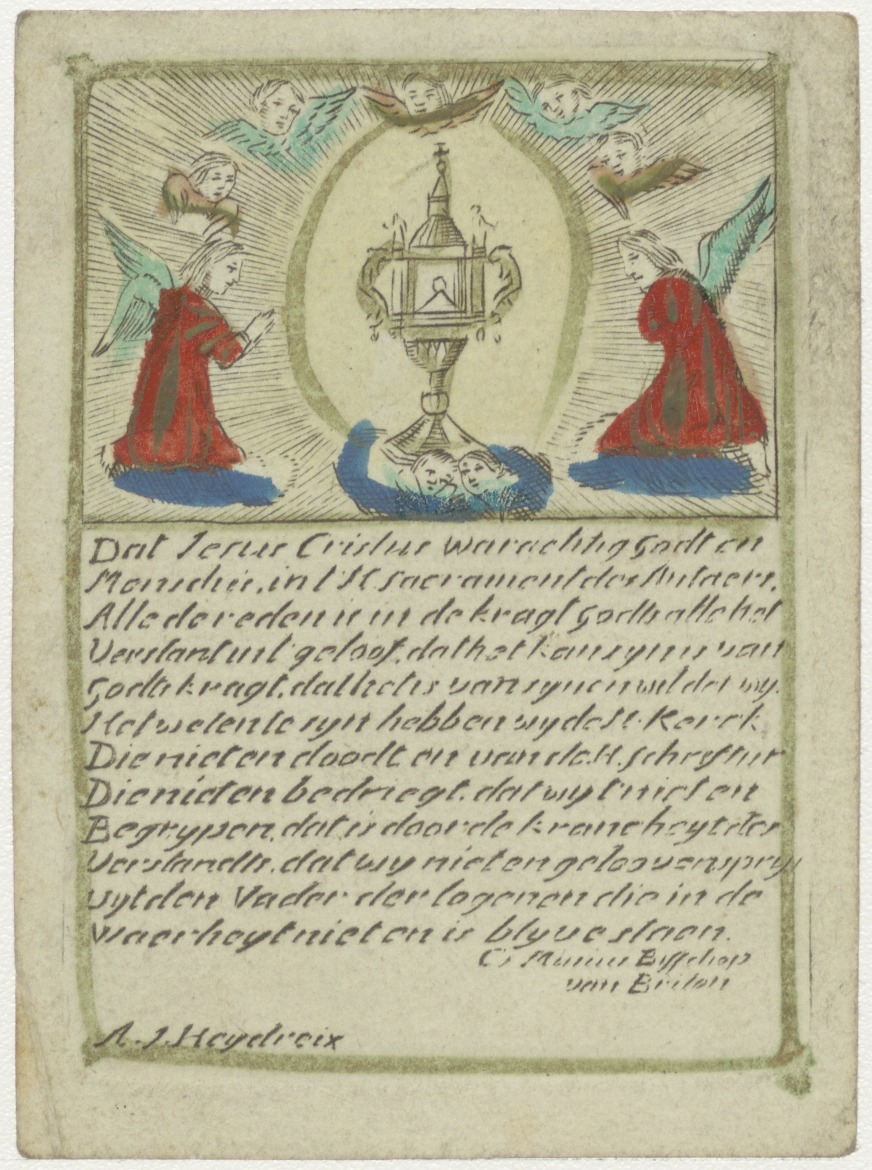 Dat Jesus Cristus warachtig godt en
Mensch is, in t' H sacrament des Autaers.
Alle de reden is in de kragt godts alle het
Verstant uit geloof. dat het kan syn is van
godts kragt. dat het is van synen wil dat wy.
Het weten te syn hebben wy de H. Kerck
Die niet en doodt en van de H. schriftur
Die niet en bedriegt. dat wy t niet en
Begrypen. dat is door de kranckheyt des
Verstandts. dat wy niet en gelooven spryt
uyt den Vader der logenen die in de
Waerheyt niet en is blyve staen.
C. Marius Bisschop
van Briton
A. J. Heydreix